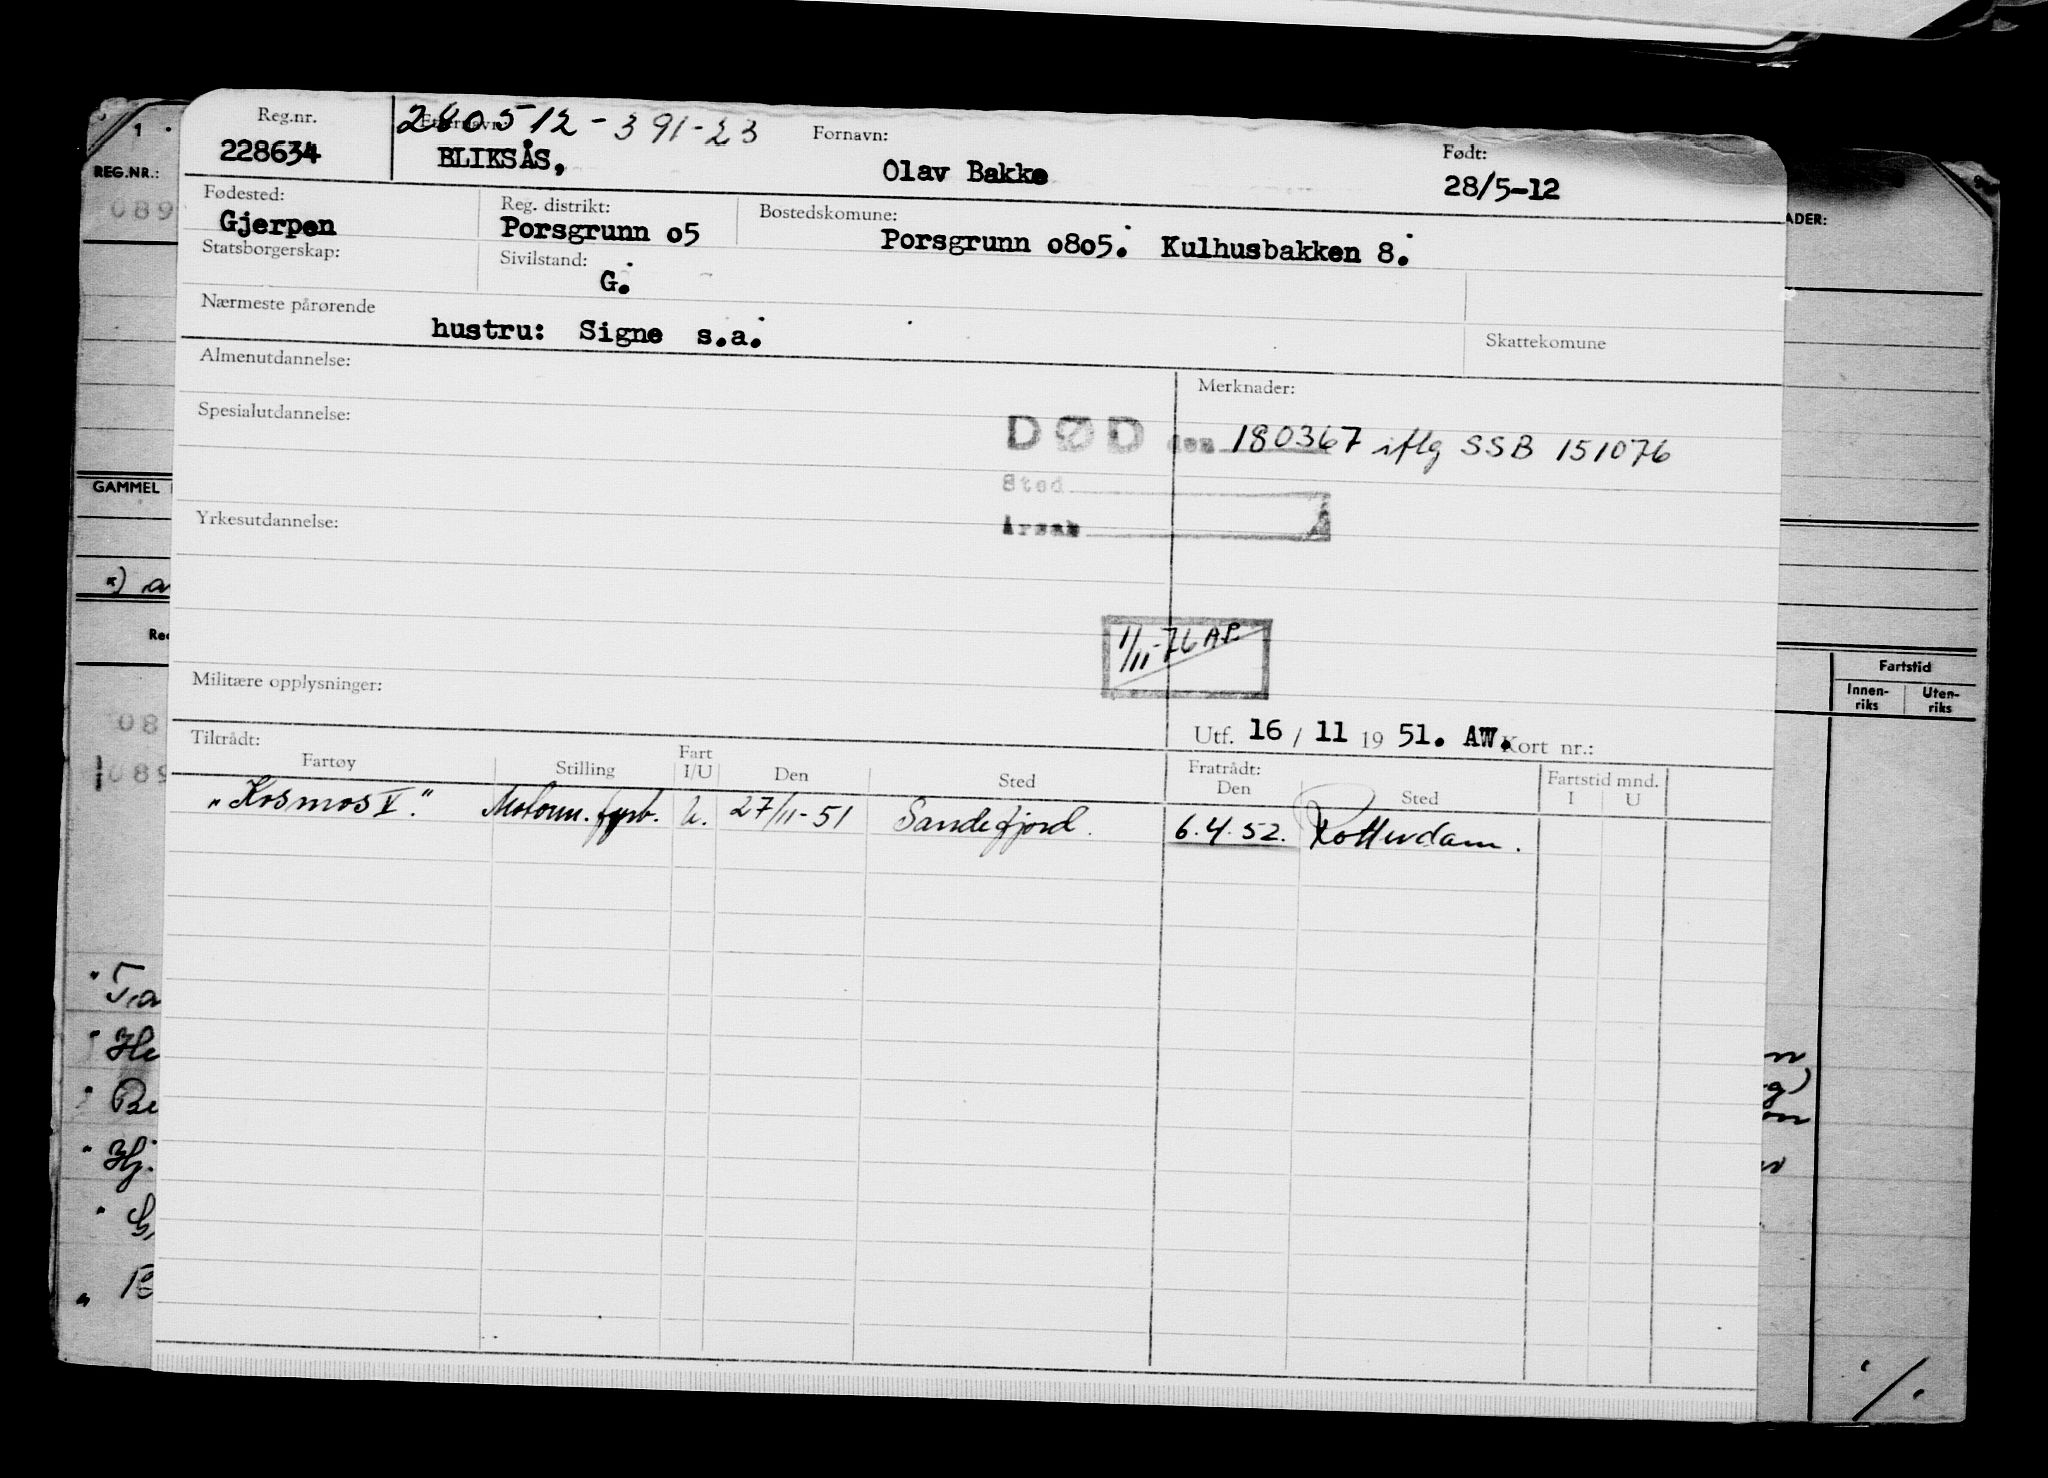 Reg.nr. Etternavn: 280512-391-23 Fornavn: Født:
228634 BLIKSÅS, Olav Bakke 28/5-12
Fødested: Reg. distrikt: Bostedskomune:
Gjerpen Porsgrunn o5 Porsgrunn o8o5. Kulhusbakken 8.
Statsborgerskap: Sivilstand:
G.
Nærmeste pårørende
hustru: Signe s.a. Skattekomune
Almenutdannelse: Merknader:
Spesialutdannelse:
DØD den 180367 iflg SSB 151076
Sted
Årsak
Yrkesutdannelse:
1/11-76 AP
Militære opplysninger:
Utf. 16 / 11 19 51. AW. Kort nr.:
Tiltrådt: Fratrådt: Fartstid mnd.
Fartøy Stilling Fart I/U Den Sted Den Sted I U
"Kosmos V." Motorm. fyrb. U. 27/11-51 Sandefjord. 6.4.52. Rotterdam.
1
REG.NR.:
089
GAMMEL
*)
08
089
ADER:
Fartstid
Innen-
riks
Uten-
riks